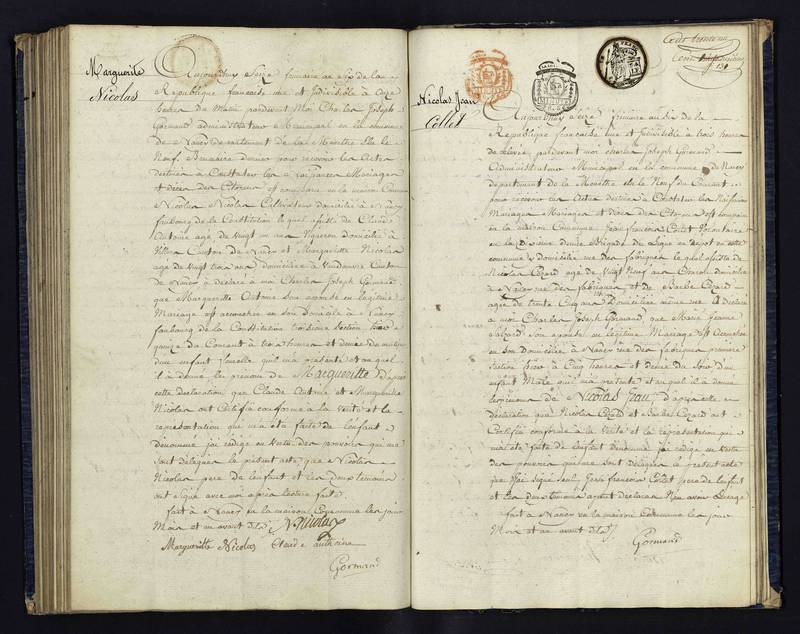 Marguerite
Nicolas
Aujourdhuy Seize frimaire an six de la
Republique francaise une et Indivisible à onze
heures du Matin pardevant Moi Charles Joseph
Gormand administrateur Municipal en la commune
de Nancy departement de la Meurthe Elu le
Neuf Brumaire dernier pour recevoir les Actes
destinés à Constater les Naissances Mariages
et décès des Citoyens est comparu en la maison Commune
Nicolas Nicolas Cultivateur domicilié à Nancy
faubourg de la Constitution lequel assisté de Claude
Antoine agé de vingt un ans Vigneron domicilié à
Villers Canton de Nancy et Margueritte Nicolas
agé de vingt trois ans domiciliée à Vandoeuvre Canton
de Nancy à déclaré a moi Charles Joseph Gormand
que Margueritte Antoine son epouse en legitime
Mariage est accouchée en son Domicile à Nancy
faubourg de la Constitution troisieme Section hier
quinze du Courant à trois heures et demie du matin
d'un enfant femelle qu'il m'a présenté et au quel
il à donné le prénom de Margueritte d'apres
cette déclaration que Claude Antoine et Margueritte
Nicolas ont Certifié conforme à la verité et la
représentation qui m'a été faite de l'enfant
denommé j'ai redigé en vertu des pouvoirs qui me
sont délégués le présent acte que Nicolas
Nicolas pere de l'enfant et les deux temoins
ont signé avec moi après lecture faite.
fait à Nancy en la maison Commune les jour
Mois et an avant dits
N Nicolas
Margueritte Nicolas Claude anthoine
Gormand
Nicolas Jean
Collet
Aujourdhuy Seize frimaire an six de la
République française une et Indivisible à trois heures
de relevée pardevant moi Charles Joseph Gormand
Administrateur Municipal en la commune de Nancy
département de la Meurthe elu le Neuf du Courant
pour recevoir les Actes destinés à Constater les Naissances
Mariages et décès des Citoyens est comparu
en la maison Commune Jean françois Collet Volontaire
commune y domicilié rue des fabriques le quel assisté de
Nicolas Cozard agé de vingt Neuf ans domicilié
à Nancy rue des fabriques et de Barbe Cozard
agée de trente Cinq ans Domiciliée même rue à Déclaré
a moi Charles Joseph Gormand que Marie Jeanne
son epouse en legitime Mariage est Accouchée
en son Domicile à Nancy rue des fabriques premiere
Section hier à Cinq heures et demie du Soir d'un
enfant Male qu'il m'a présenté et au quel il à donné
les prénoms de Nicolas Jean d'apres cette
déclaration que Nicolas Cozard et Barbe Cozard ont
Certifié conforme à la Verité et la représentation qui
m'a été faite de l'enfant denommé j'ai redigé en vertu
des pouvoirs qui me sont délégués le présent acte
que j'ai signé seul Jean françois Collet pere de l'enfant
et les deux temoins ayant déclaré Ne savoir
fait à Nancy en la maison Commune les jour
Mois et an avant dits
Gormand